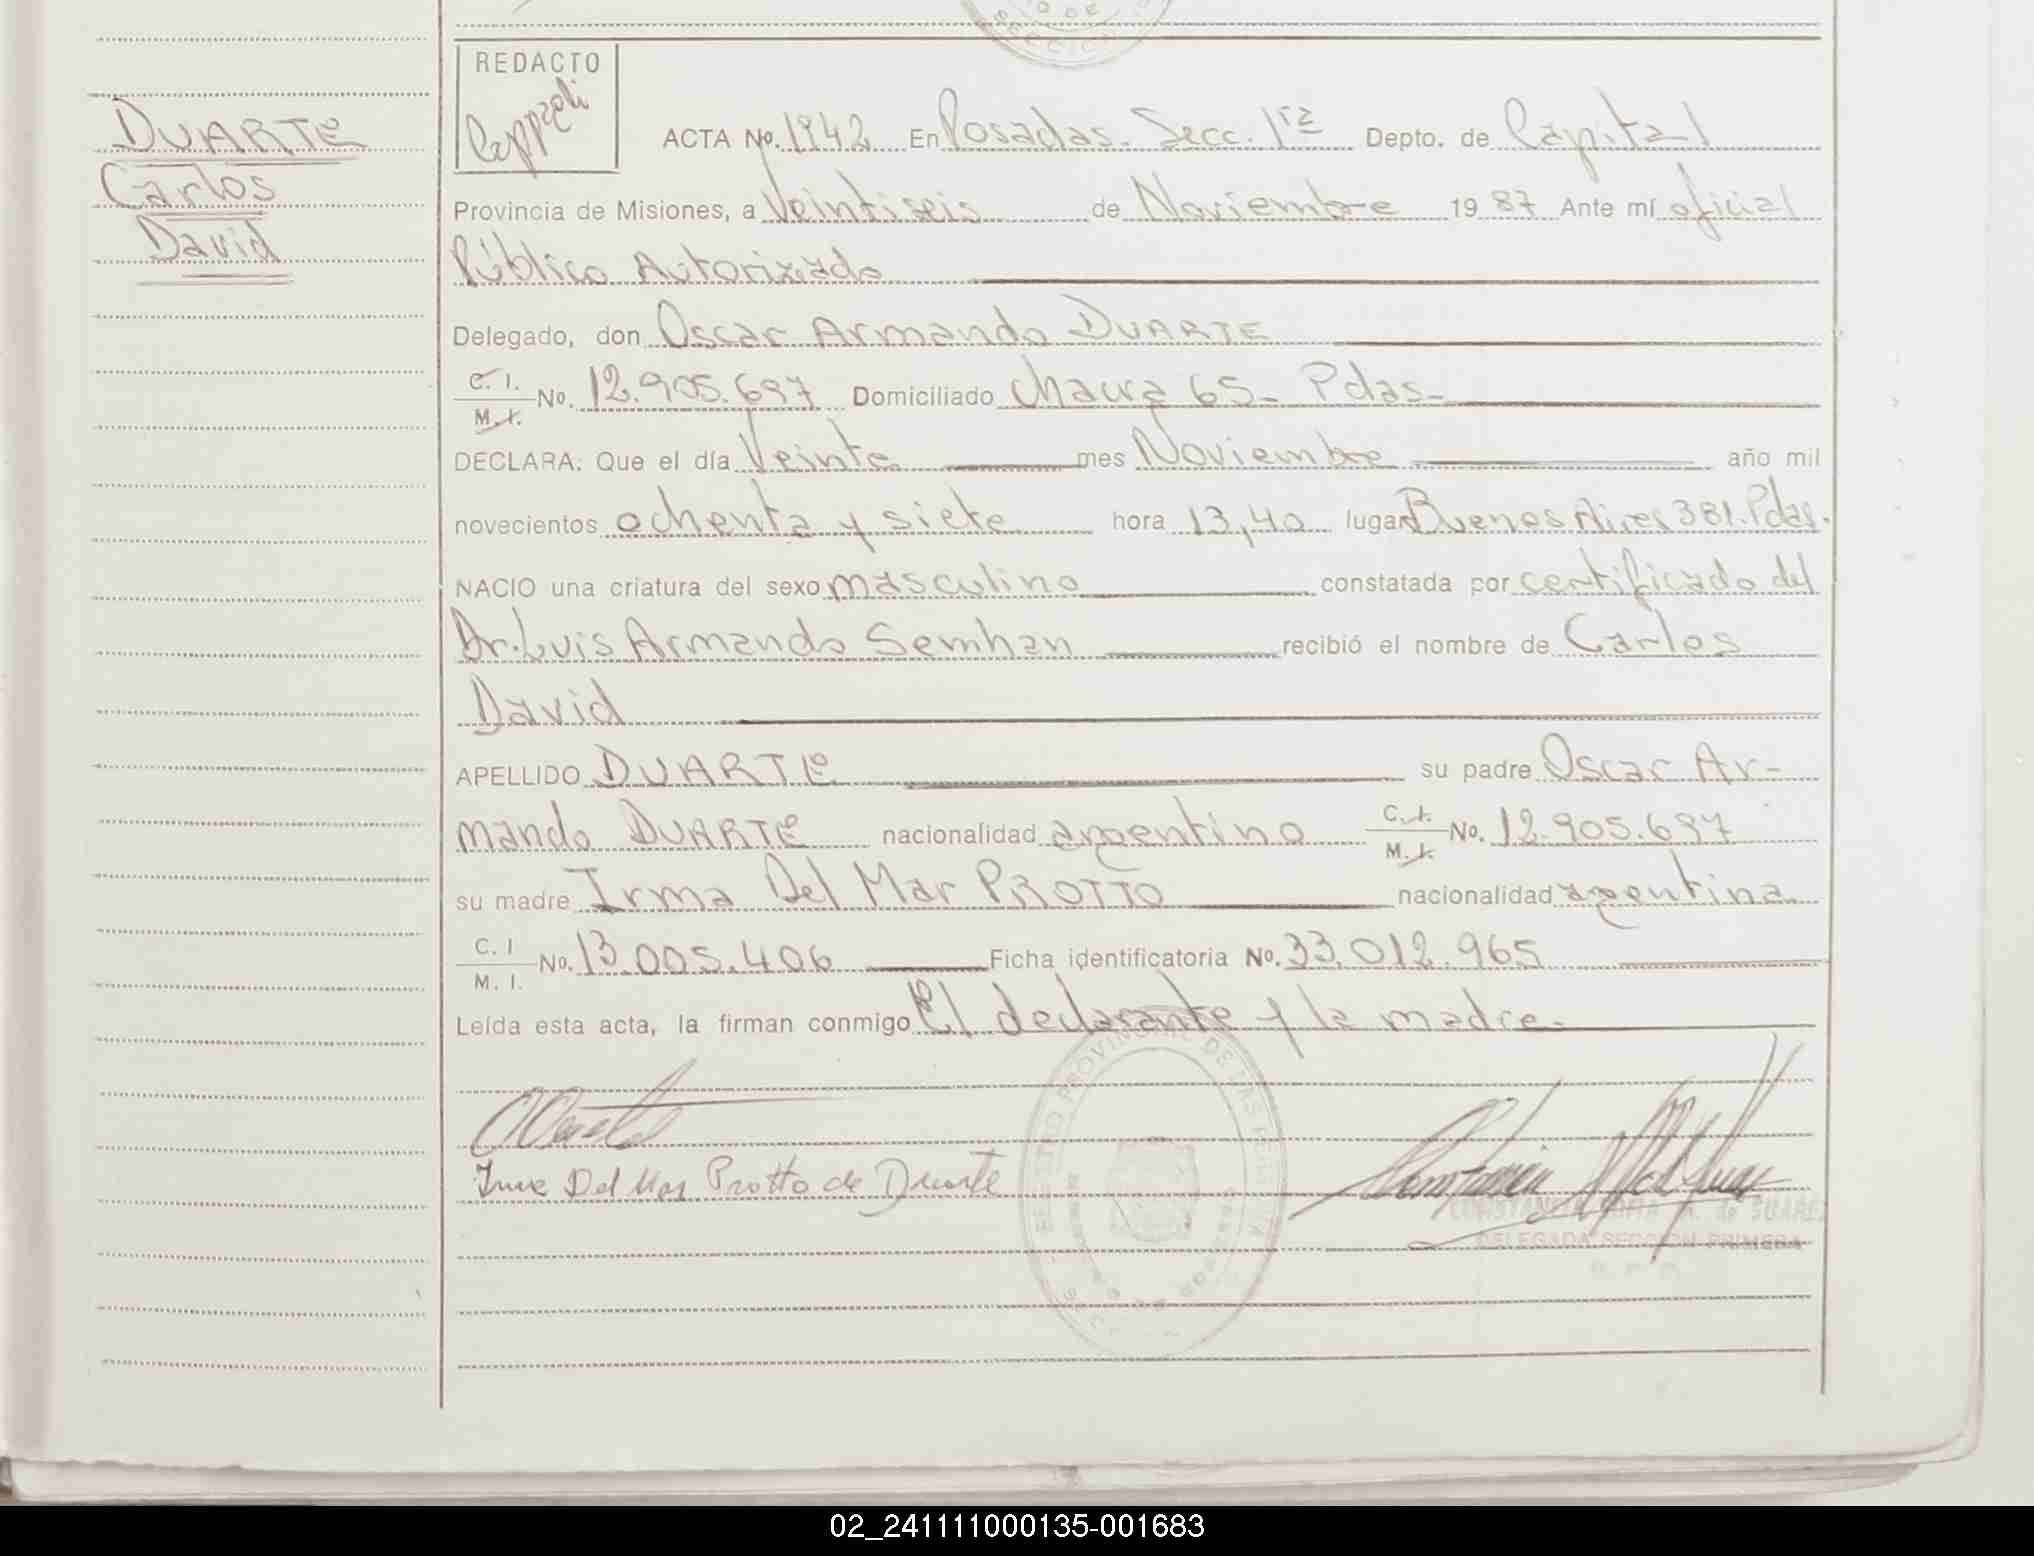 SECCION
REDACTO
DUARTE
Carlos
David
ACTA No. 1942 En Posadas. Secc. 1ra Depto. de Capital
Provincia de Misiones, a Veintiseis de Noviembre 19 87 Ante mí oficial
Público Autorizado
Delegado, don Oscar Armando DUARTE
C. I.
M. I. No. 12.905.697 Domiciliado 65- Pdas-
DECLARA: Que el día Veinte mes Noviembre año mil
novecientos ochenta y siete hora 13,40 lugar Buenos Aires 381. Pdas.
NACIO una criatura del sexo masculino constatada por certificado del
Dr. Luis Armando Semhan recibió el nombre de Carlos
David
APELLIDO DUARTE su padre Oscar Ar-
mando DUARTE nacionalidad argentino C. I.
M. I. No. 12.905.697
su madre Irma Del Mar PROTTO nacionalidad argentina
C. I
M. I. No. 13.005.406 Ficha identificatoria No. 33.012.965
Leída esta acta, la firman conmigo El declarante y la madre.
Irma Del Mar Protto de Duarte
REGISTRO PROVINCIAL DE LAS PERSONAS
CONSTANCIA SOFIA M. de SUAREZ
DELEGADA SECCION PRIMERA
02_241111000135-001683